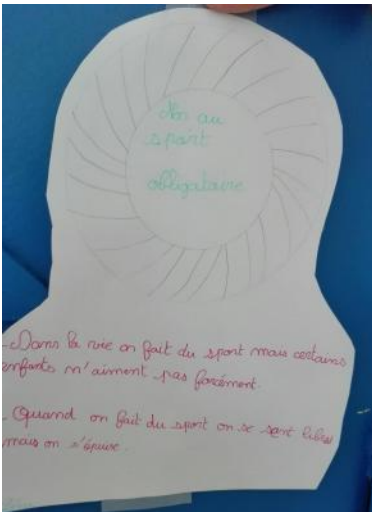 Non au
sport
obligatoire
- Dans la vie on fait du sport mais certains
enfants n'aiment pas forcément.
- Quand on fait du sport on se sent libre
mais on s'épuise.